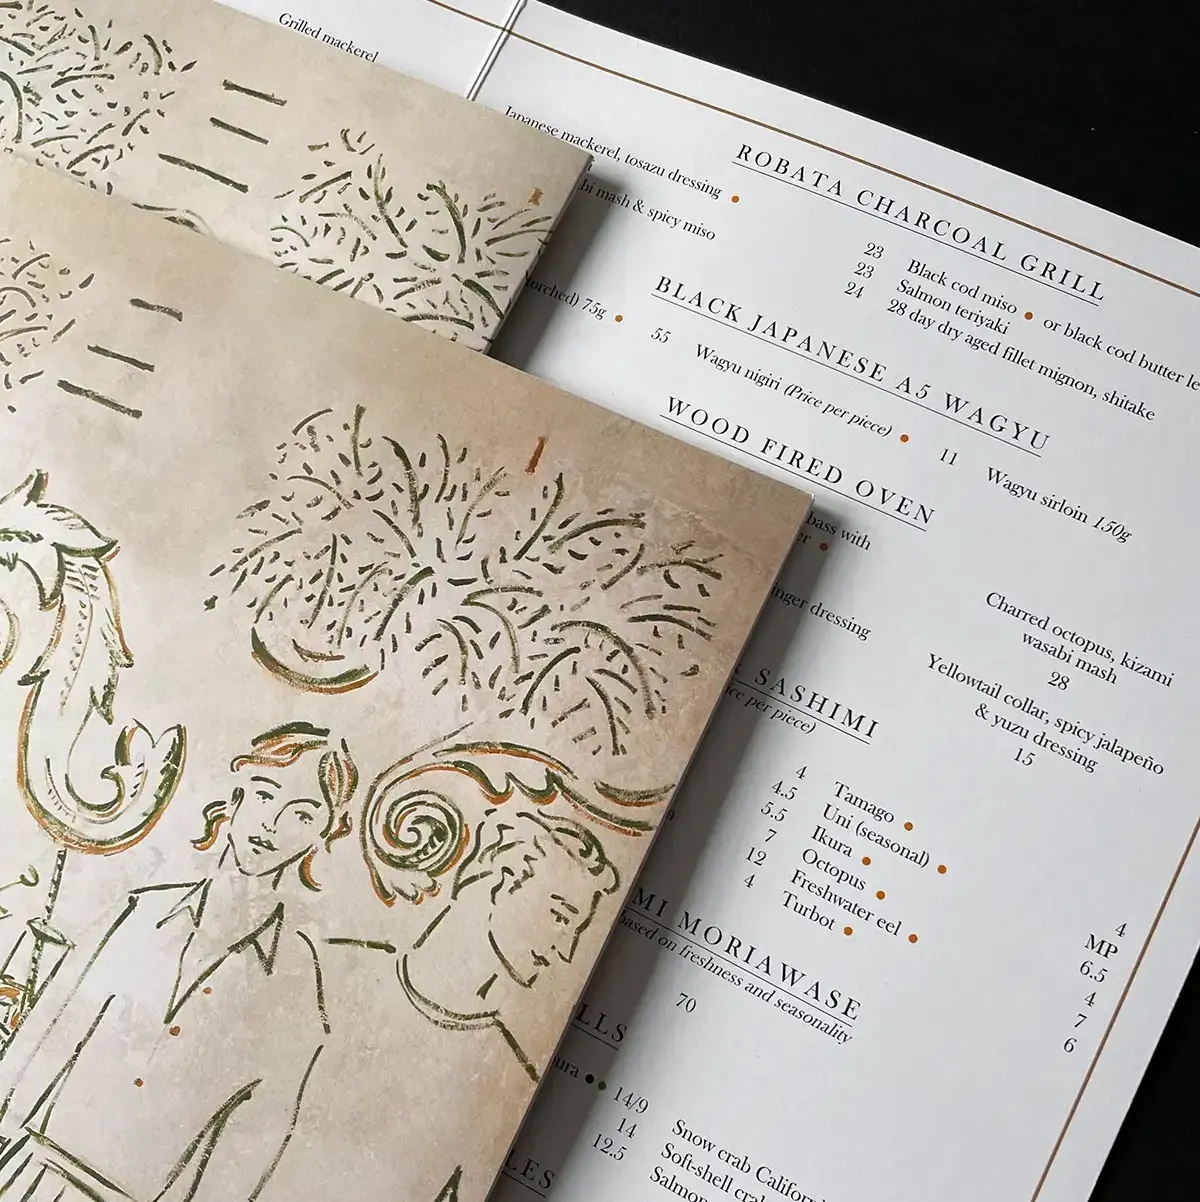 Grilled mackerel
Japanese mackerel, tosazu dressing
mash & spicy miso
75g
ROBATA CHARCOAL GRILL
23 Black cod miso or black cod butter
23 Salmon teriyaki
24 28 day dry aged fillet mignon, shitake
BLACK JAPANESE A5 WAGYU
55 Wagyu nigiri (Price per piece) 11 Wagyu sirloin 150g
WOOD FIRED OVEN
bass with
dressing
Charred octopus, kizami
wasabi mash
28
Yellowtail collar, spicy jalapeño
& yuzu dressing
15
SASHIMI
per piece)
4 Tamago 4
4.5 Uni (seasonal) MP
5.5 Ikura 6.5
7 Octopus 4
12 Freshwater eel 7
4 Turbot 6
MORIAWASE
based on freshness and seasonality
70
14/9 Snow crab
14 Soft-shell
12.5 Salmon